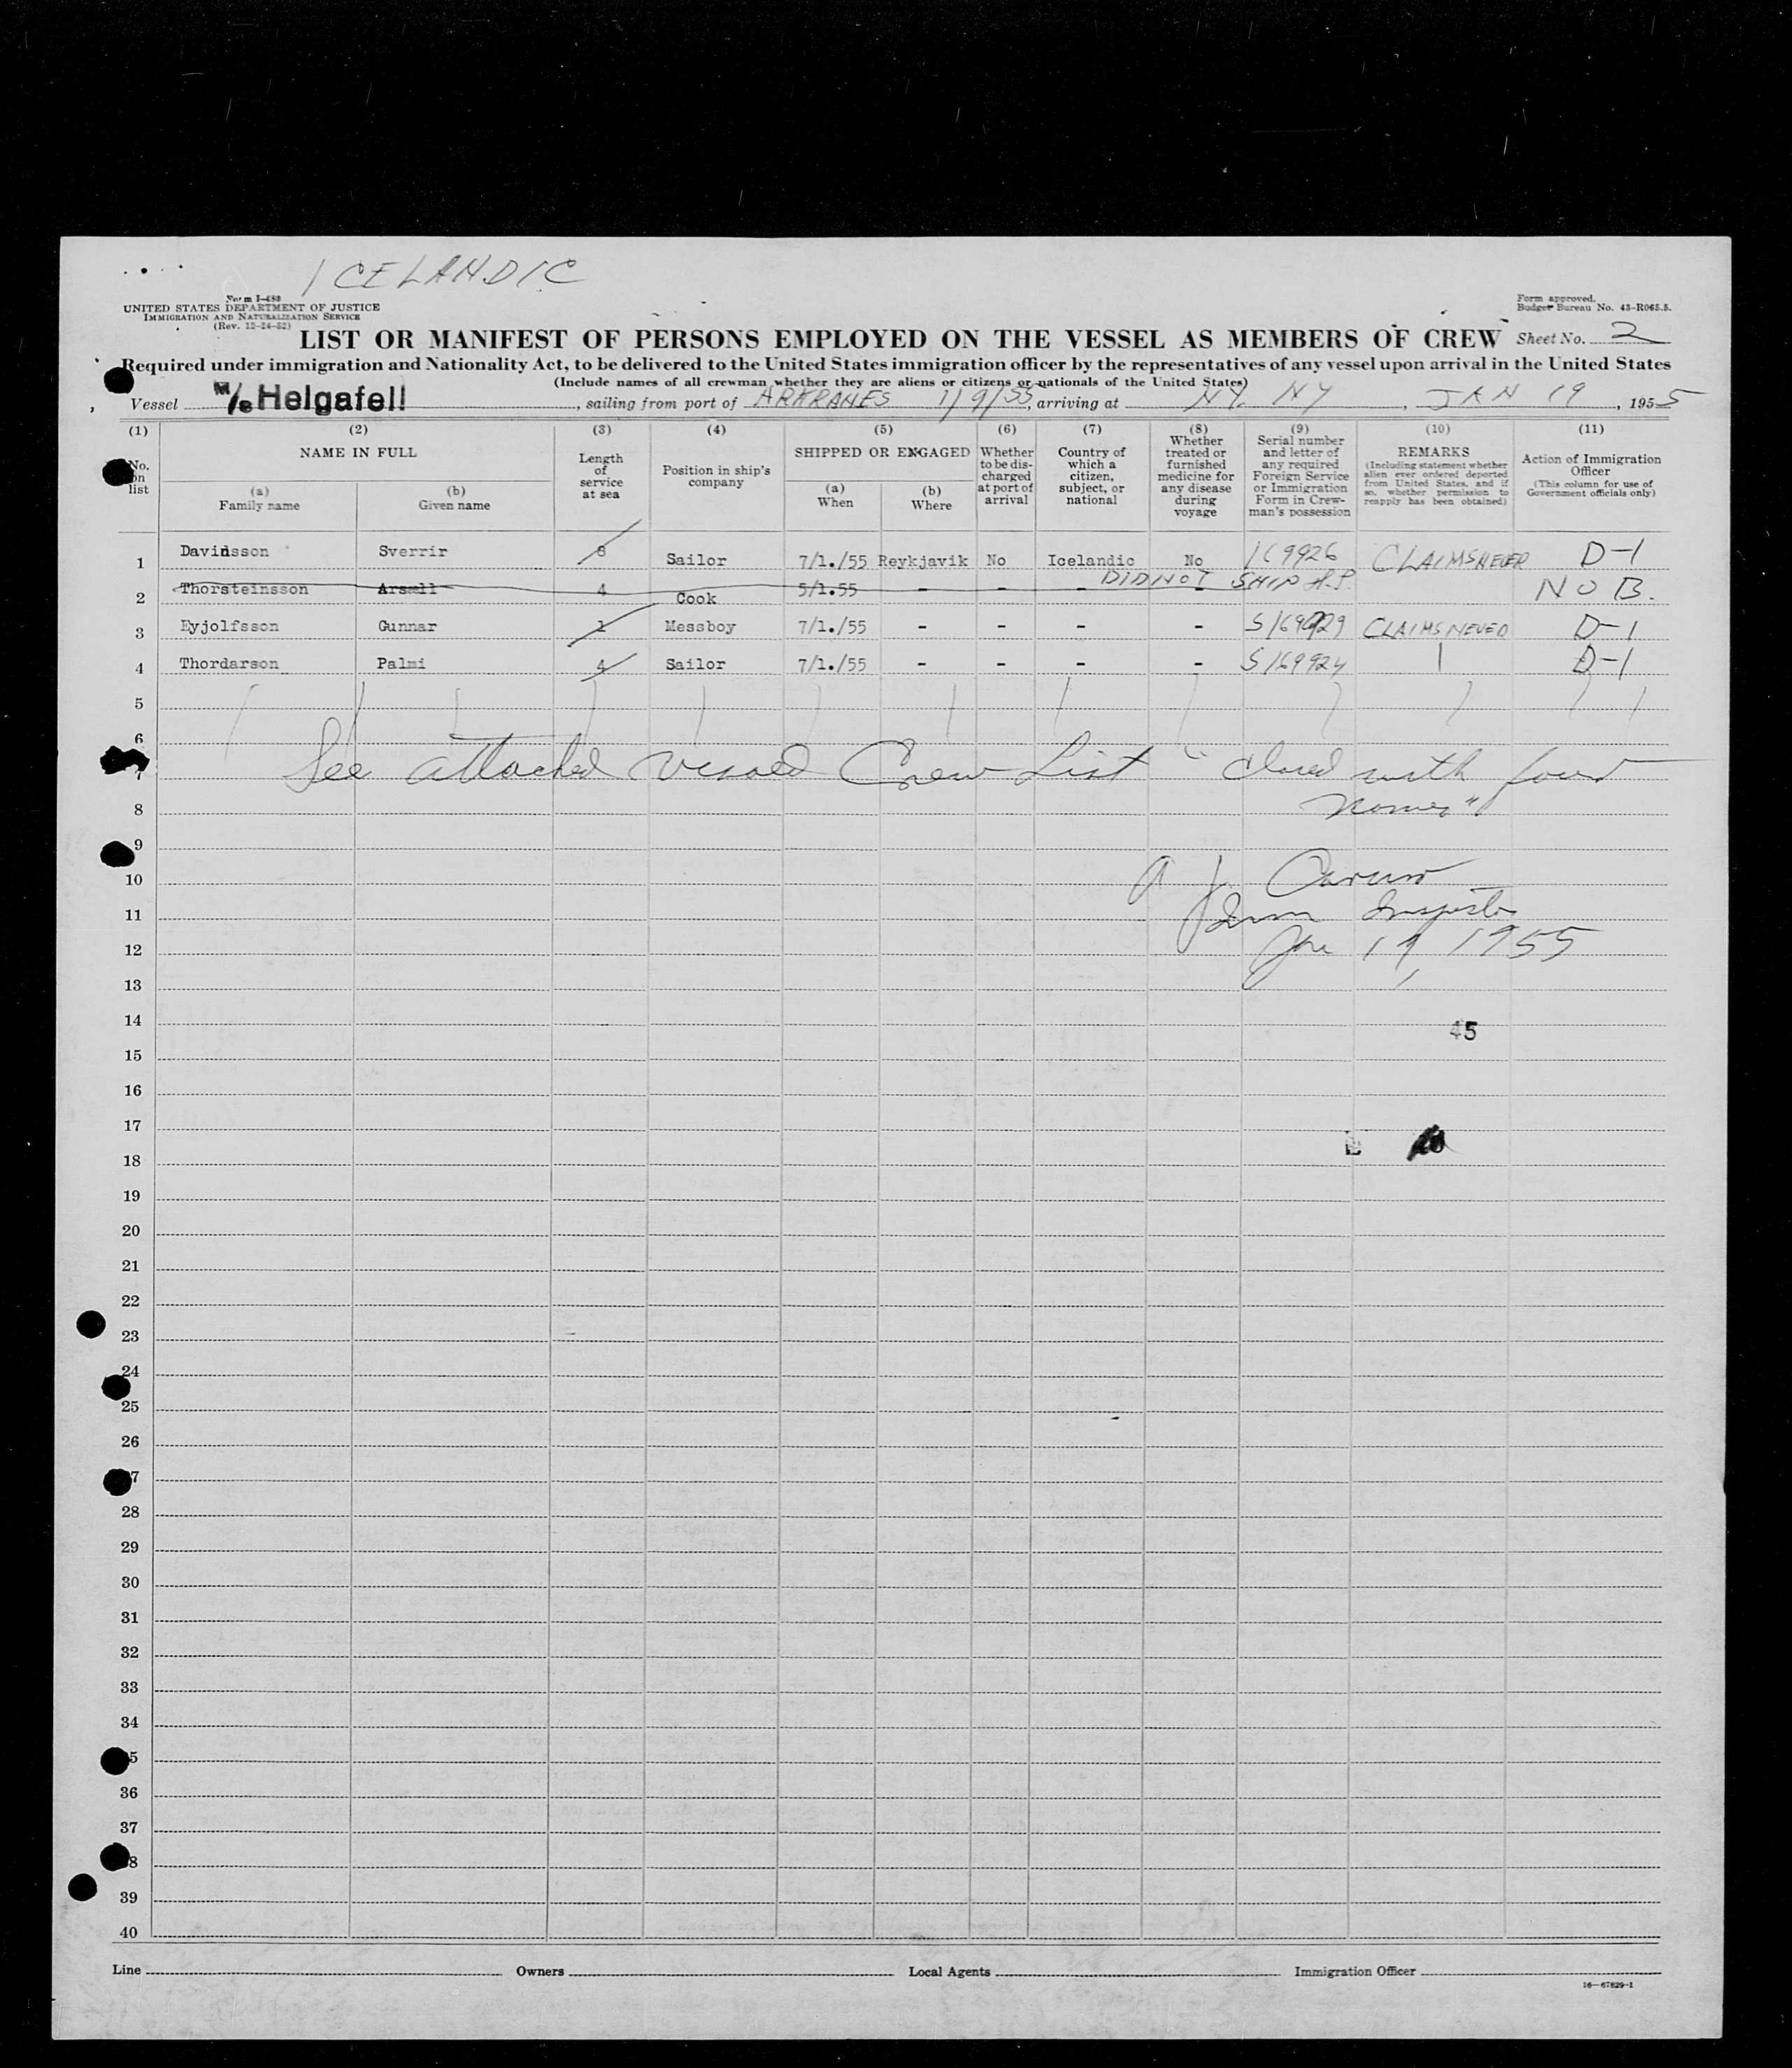 ICELANDIC
Form I-480
UNITED STATES DEPARTMENT OF JUSTICE
IMMIGRATION AND NATURALIZATION SERVICE
(Rev. 12-24-52)
Form approved.
Budget Bureau No. 43-R065.5.
LIST OR MANIFEST OF PERSONS EMPLOYED ON THE VESSEL AS MEMBERS OF CREW Sheet No. 2
Required under immigration and Nationality Act, to be delivered to the United States immigration officer by the representatives of any vessel upon arrival in the United States
(Include names of all crewman whether they are aliens or citizens or nationals of the United States)
Vessel M/s Helgafell, sailing from port of AKRANES 1/9/55, arriving at NY. NY, JAN 19, 1955
(1) (2) (3) (4) (5) (6) (7) (8) (9) (10) (11)
No. on list
NAME IN FULL
(a) Family name
(b) Given name
Length of service at sea
Position in ship's company
SHIPPED OR ENGAGED
(a) When
(b) Where
Whether to be discharged at port of arrival
Country of which a citizen, subject, or national
Whether treated or furnished medicine for any disease during voyage
Serial number and letter of any required Foreign Service or Immigration Form in Crewman's possession
REMARKS
(Including statement whether alien ever ordered deported from United States, and if so, whether permission to reapply has been obtained)
Action of Immigration Officer
(This column for use of Government officials only)
1 Davidsson Sverrir 8 Sailor 7/1./55 Reykjavik No Icelandic No 169926 CLAIMS NEVER D-1
2 Thorsteinsson Arsæll 4 Cook 5/1.55 - - - - DID NOT SHIP N O B.
3 Eyjolfsson Gunnar 1 Messboy 7/1./55 - - - - CLAIMS NEVER D-1
4 Thordarson Palmi 4 Sailor 7/1./55 - - - - S169924 D-1
5
6
7 See attached visaed Crew List "closed with four
8 names"
9
10 A J Caruso
11 Imm Inspector
12 Jan 19, 1955
13
14
45
15
16
17
18
19
20
21
22
23
24
25
26
27
28
29
30
31
32
33
34
35
36
37
38
39
40
Line Owners Local Agents Immigration Officer
16-67829-1